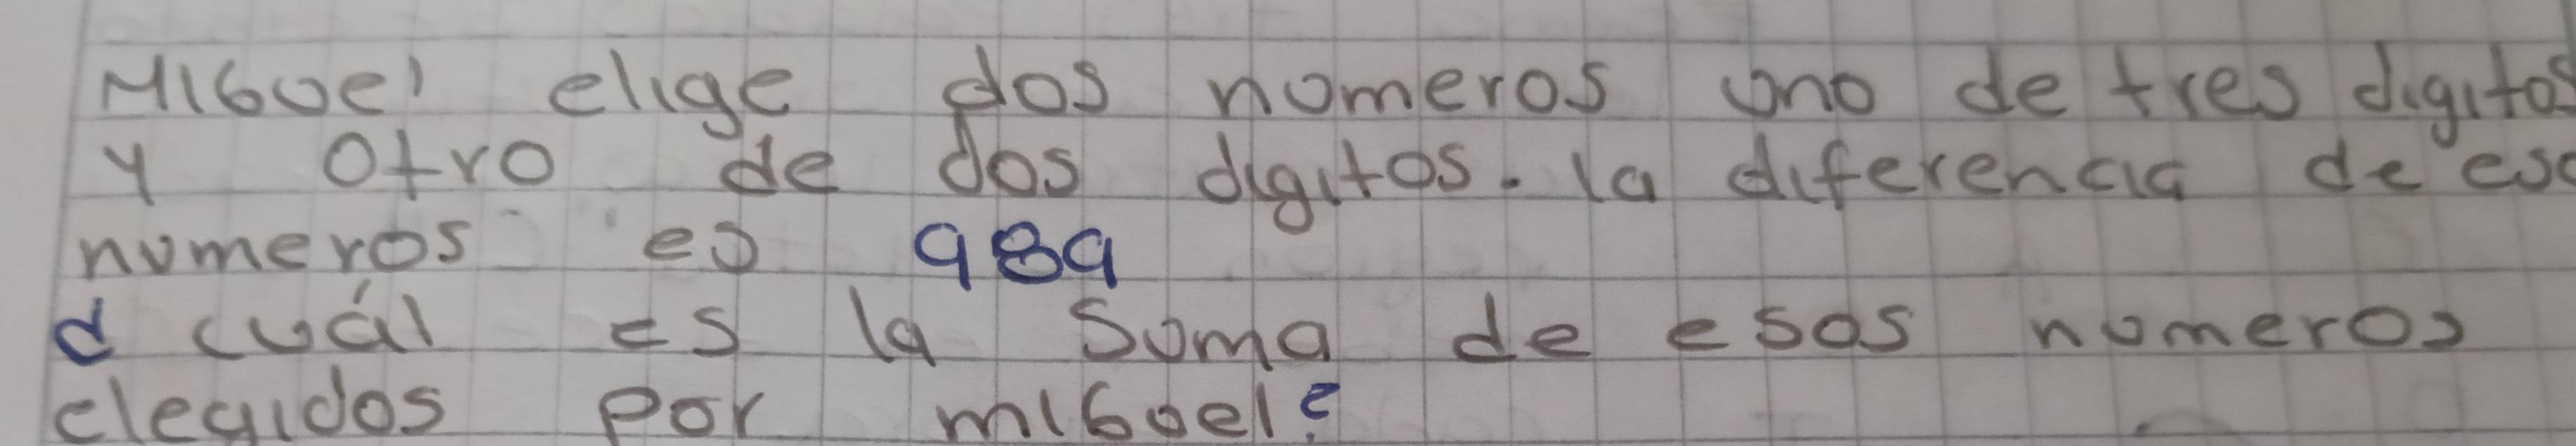 Miguel elige dos numeros uno de tres digitos
y otro de dos digitos. la diferencia de eso
numeros es 989
¿ cuál es la suma de esos numeros
elegidos por miguel?